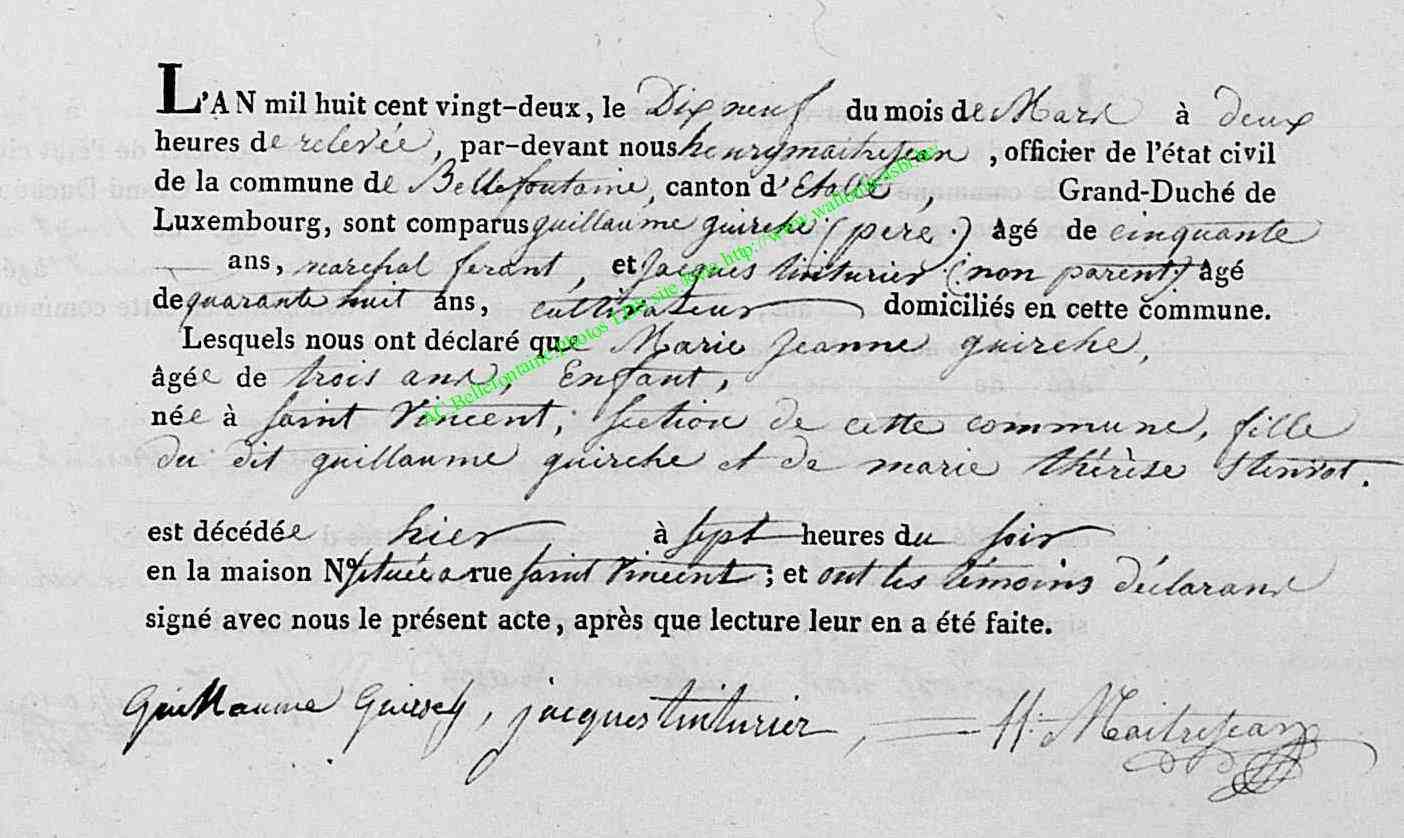 L'AN mil huit cent vingt-deux, le Dix neuf du mois de Mars à deux
heures de relevée, par-devant nous henry maitrejean, officier de l'état civil
de la commune de Bellefontaine, canton d'Etalle, Grand-Duché de
Luxembourg, sont comparus guillaume guirche (pere.) âgé de cinquante
ans, marchal ferant, et Jacques tinturier (non parent) âgé
de quarante huit ans, cultivateur domiciliés en cette commune.
Lesquels nous ont déclaré que Marie Jeanne guirche,
âgée de trois ans, Enfant,
née à saint Vincent, section de cette commune, fille
du dit guillaume guirche et de marie thérèse
est décédée hier à sept heures du soir
en la maison N° située a rue saint Vincent; et ont les témoins déclarans
signé avec nous le présent acte, après que lecture leur en a été faite.
Guillaume, jacques tinturier, H. Maitrejean
AC Bellefontaine photos site http://www.